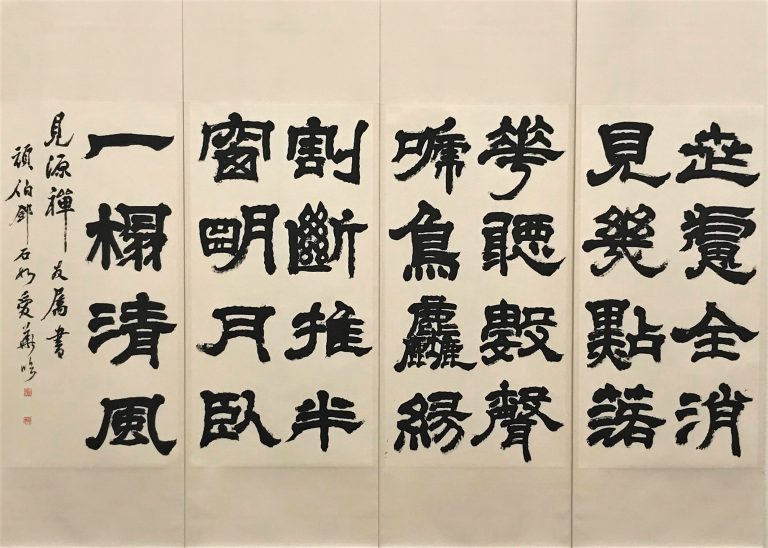 世慮全消
見幾點落
華聽數聲
嗁鳥塵緣
割斷推半
窗明月臥
一榻清風
見源禪友屬書
頑伯鄧石如愛華臨